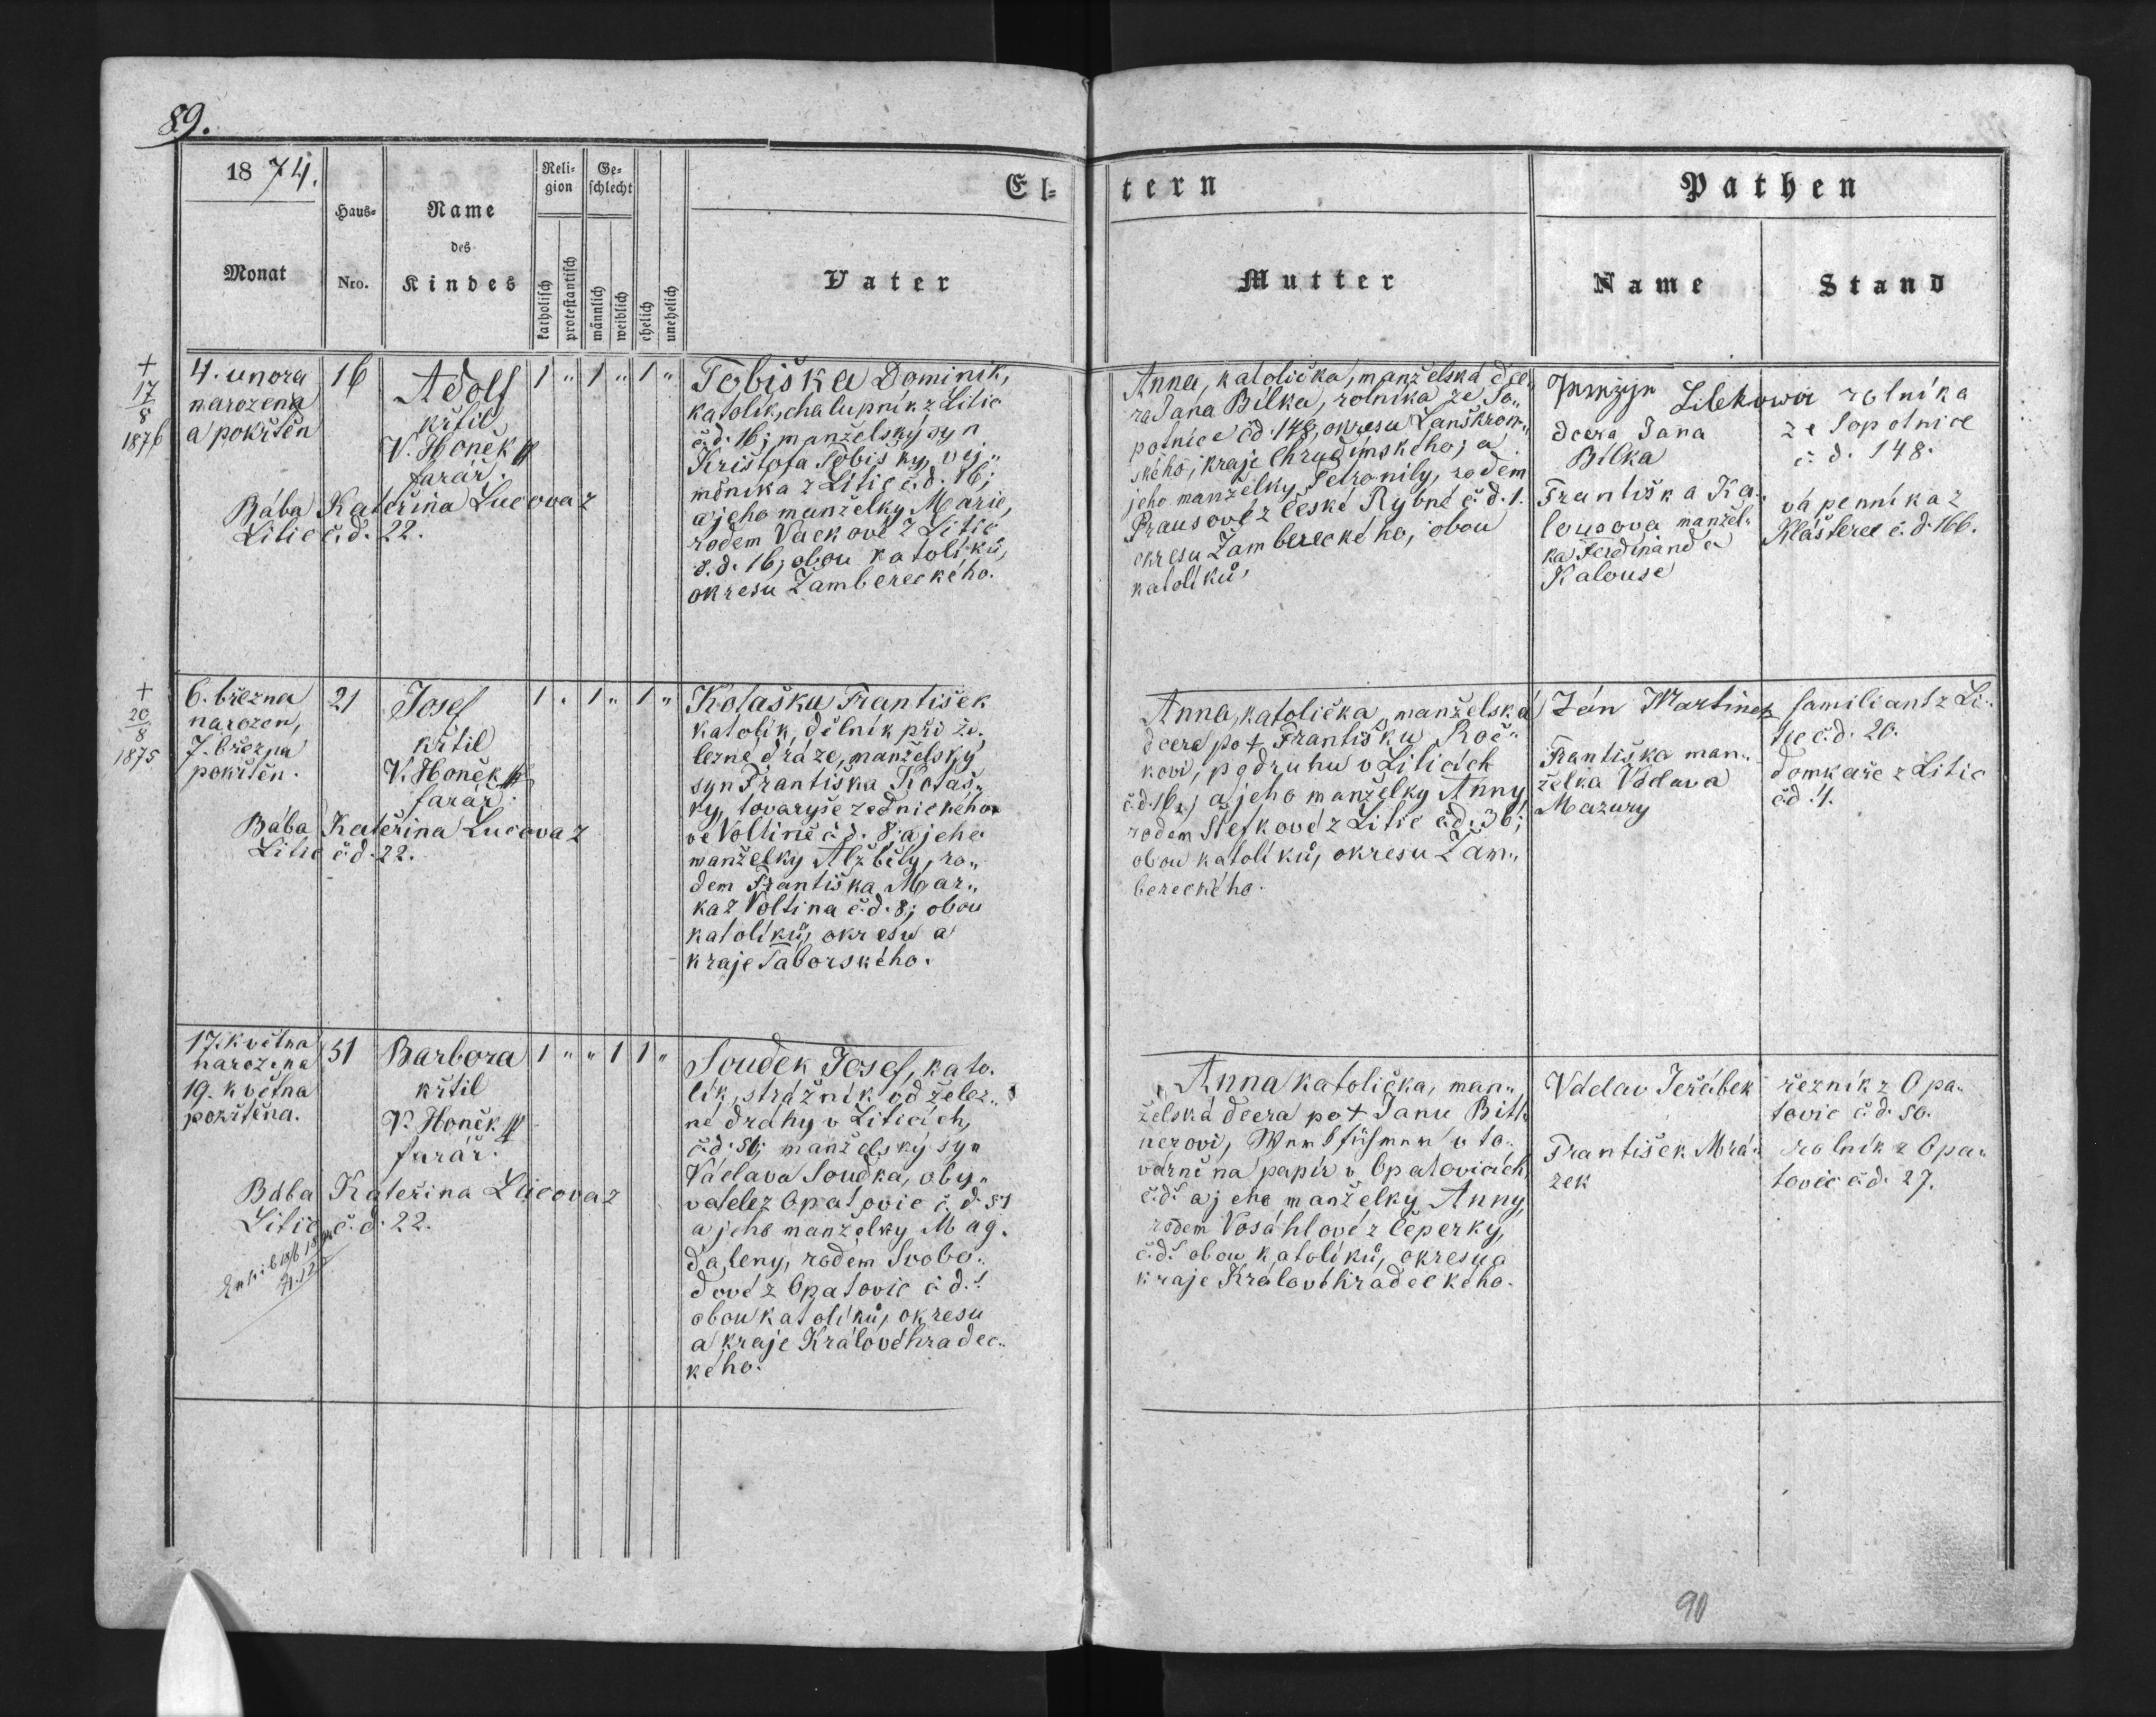 89.
1874.
Monat
Haus-
Nro.
Name
des
Kindes
Reli-
gion
Ge-
schlecht
katholisch
protestantisch
männlich
weiblich
ehelich
unehelich
El-
tern
Vater
Mutter
Pathen
Name
Stand
+
17
8
1876
4. unora
narozena
a pokřtěn
16
Adolf
křtil
V. Honěk
farář.
Bába Kateřina Lucova z
Litic č.d. 22.
1 " 1 " 1 "
Tobiška Dominik,
katolík, chalupník z Litic
č.d. 16; manželský syn
Krištofa Tobišky, vej„
měníka z Litic č.d. 16;
a jeho manželky Marie,
rodem Vackové z Litic
č.d. 16; obou katolíků,
okresu Žambereckého.
Anna, katolička, manželská dce„
ra Jana Bílka, rolníka ze So„
potnice čd. 148, okresu Lanškroun„
ského, kraje Chrudímského; a
jeho manželky Petronily, rodem
Prausové z České Rybné č.d. 1.
okresu Žambereckého, obou
katolíků,
Lilekowa
dcera Jana
Bílka
Františka Ka„
lousova manžel„
ka Ferdinanda
Kalouse
rolníka
ze Sopotnice
č. d. 148.
vápenníka z
Klášterce č.d. 166.
+
20
8
1875
6. března
narozen,
7. března
pokřtěn.
21
Josef
křtil
V. Honěk
farář.
Bába Kateřina Lucova z
Litic č.d. 22.
1 " 1 " 1 "
Kotašku František
katolík, dělník při že„
lezné dráze, manželský
syn Františka Kotaš„
ky, tovaryše zednického
ve Voltině č.d. 8; a jeho
manželky Alžběty, ro„
dem Františka Mar„
ka z Voltina č.d. 8; obou
katolíků, okresu a
kraje Táborského.
Anna, katolička, manželská
dcera po + Františku Roč„
kovi, podruhu v Liticích
č.d. 16; a jeho manželky Anny
rodem Štefkové z Litic č.d. 36;
obou katolíků, okresu Žam„
bereckého.
Ján Martinek
Františka man„
želka Václava
Mazury
familiant z Li„
tic č.d. 20.
domkaře z Litic
čd. 4.
17. května
narozena
19. května
pokřtěna.
51
Barbora
křtil
V. Honěk
farář.
Bába Kateřina Lucova z
Litic č.d. 22.
1 " " 1 1 "
Soudek Josef, kato„
lík, strážník od želez„
né dráhy v Liticích,
č.d. 51; manželský syn
Václava Soudka, oby„
vatele z Opatovic č. d. 51
a jeho manželky Mag„
daleny, rodem Svobo„
dové z Opatovic č.d.
obou katolíků, okresu
a kraje Královéhradec„
kého.
Anna katolička, man„
želská dcera po + Janu Bitt„
nerovi, v to„
várně na papír v Opatovicích
č.d. a jeho manželky Anny,
rodem Vosáhlové z Čeperky,
č.d. obou katolíků, okresu a
kraje Královéhradeckého.
Václav Jeřábek
František Mrá„
zek
řezník z Opa„
tovic č.d. 50.
rolník z Opa„
tovic č.d. 27.
90